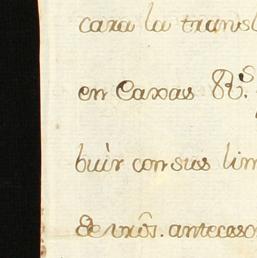 cara la transl
en Caxas R.s
buir con sus lim
de vrôs. anteceso